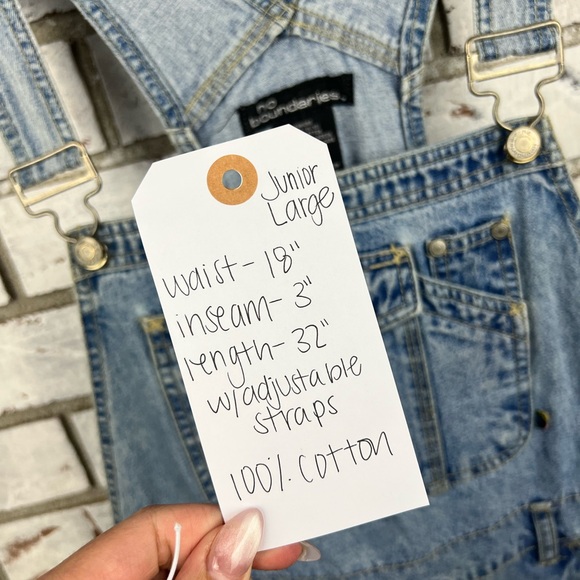 no
boundaries.
Junior
Large
waist- 18"
inseam- 3"
length- 32"
w/adjustable
straps
100% cotton